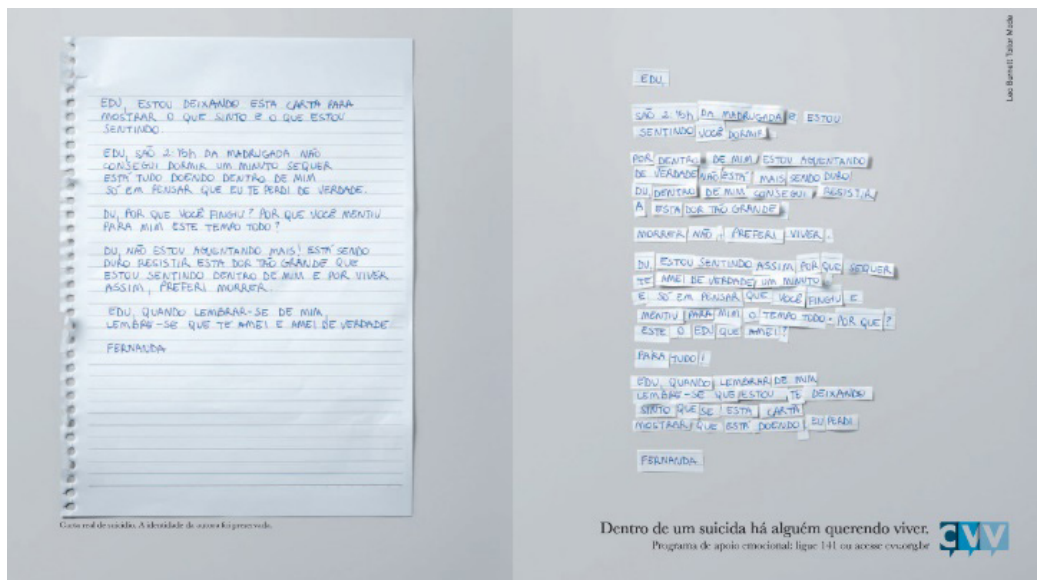 EDU, ESTOU DEIXANDO ESTA CARTA PARA
MOSTRAR O QUE SINTO E O QUE ESTOU
SENTINDO.
EDU, SÃO 2:15h DA MADRUGADA NÃO
CONSEGUI DORMIR UM MINUTO SEQUER
ESTÁ TUDO DOENDO DENTRO DE MIM
SÓ EM PENSAR QUE EU TE PERDI DE VERDADE.
DU, POR QUE VOCÊ FINGIU? POR QUE VOCÊ MENTIU
PARA MIM ESTE TEMPO TODO?
DU, NÃO ESTOU AGUENTANDO MAIS! ESTÁ SENDO
DURO RESISTIR ESTA DOR TÃO GRANDE QUE
ESTOU SENTINDO DENTRO DE MIM E POR VIVER
ASSIM, PREFERI MORRER.
EDU, QUANDO LEMBRAR-SE DE MIM,
LEMBRE-SE QUE TE AMEI E AMEI DE VERDADE
FERNANDA
Carta real de suicídio. A identidade da autora foi preservada.
EDU,
SÃO 2:15h DA MADRUGADA E ESTOU
SENTINDO VOCÊ DORMIR.
POR DENTRO DE MIM ESTOU AGUENTANDO
DE VERDADE NÃO ESTÁ MAIS SENDO DURO
DU, DENTRO DE MIM CONSEGUI RESISTIR
A ESTA DOR TÃO GRANDE.
MORRER NÃO, PREFERI VIVER.
DU ESTOU SENTINDO ASSIM, POR QUE SEQUER
TE AMEI DE VERDADE UM MINUTO.
E SÓ EM PENSAR QUE VOCÊ FINGIU E
MENTIU PARA MIM O TEMPO TODO. POR QUE?
ESTE O EDU QUE AMEI?
PARA TUDO!
EDU, QUANDO LEMBRAR DE MIM
LEMBRE-SE QUE ESTOU TE DEIXANDO
SINTO QUE SE ESTA CARTA
MOSTRAR QUE ESTÁ DOENDO, EU PERDI
FERNANDA
Dentro de um suicida há alguém querendo viver.
Programa de apoio emocional: ligue 141 ou acesse cvv.org.br
CVV
Leo Burnett Tailor Made